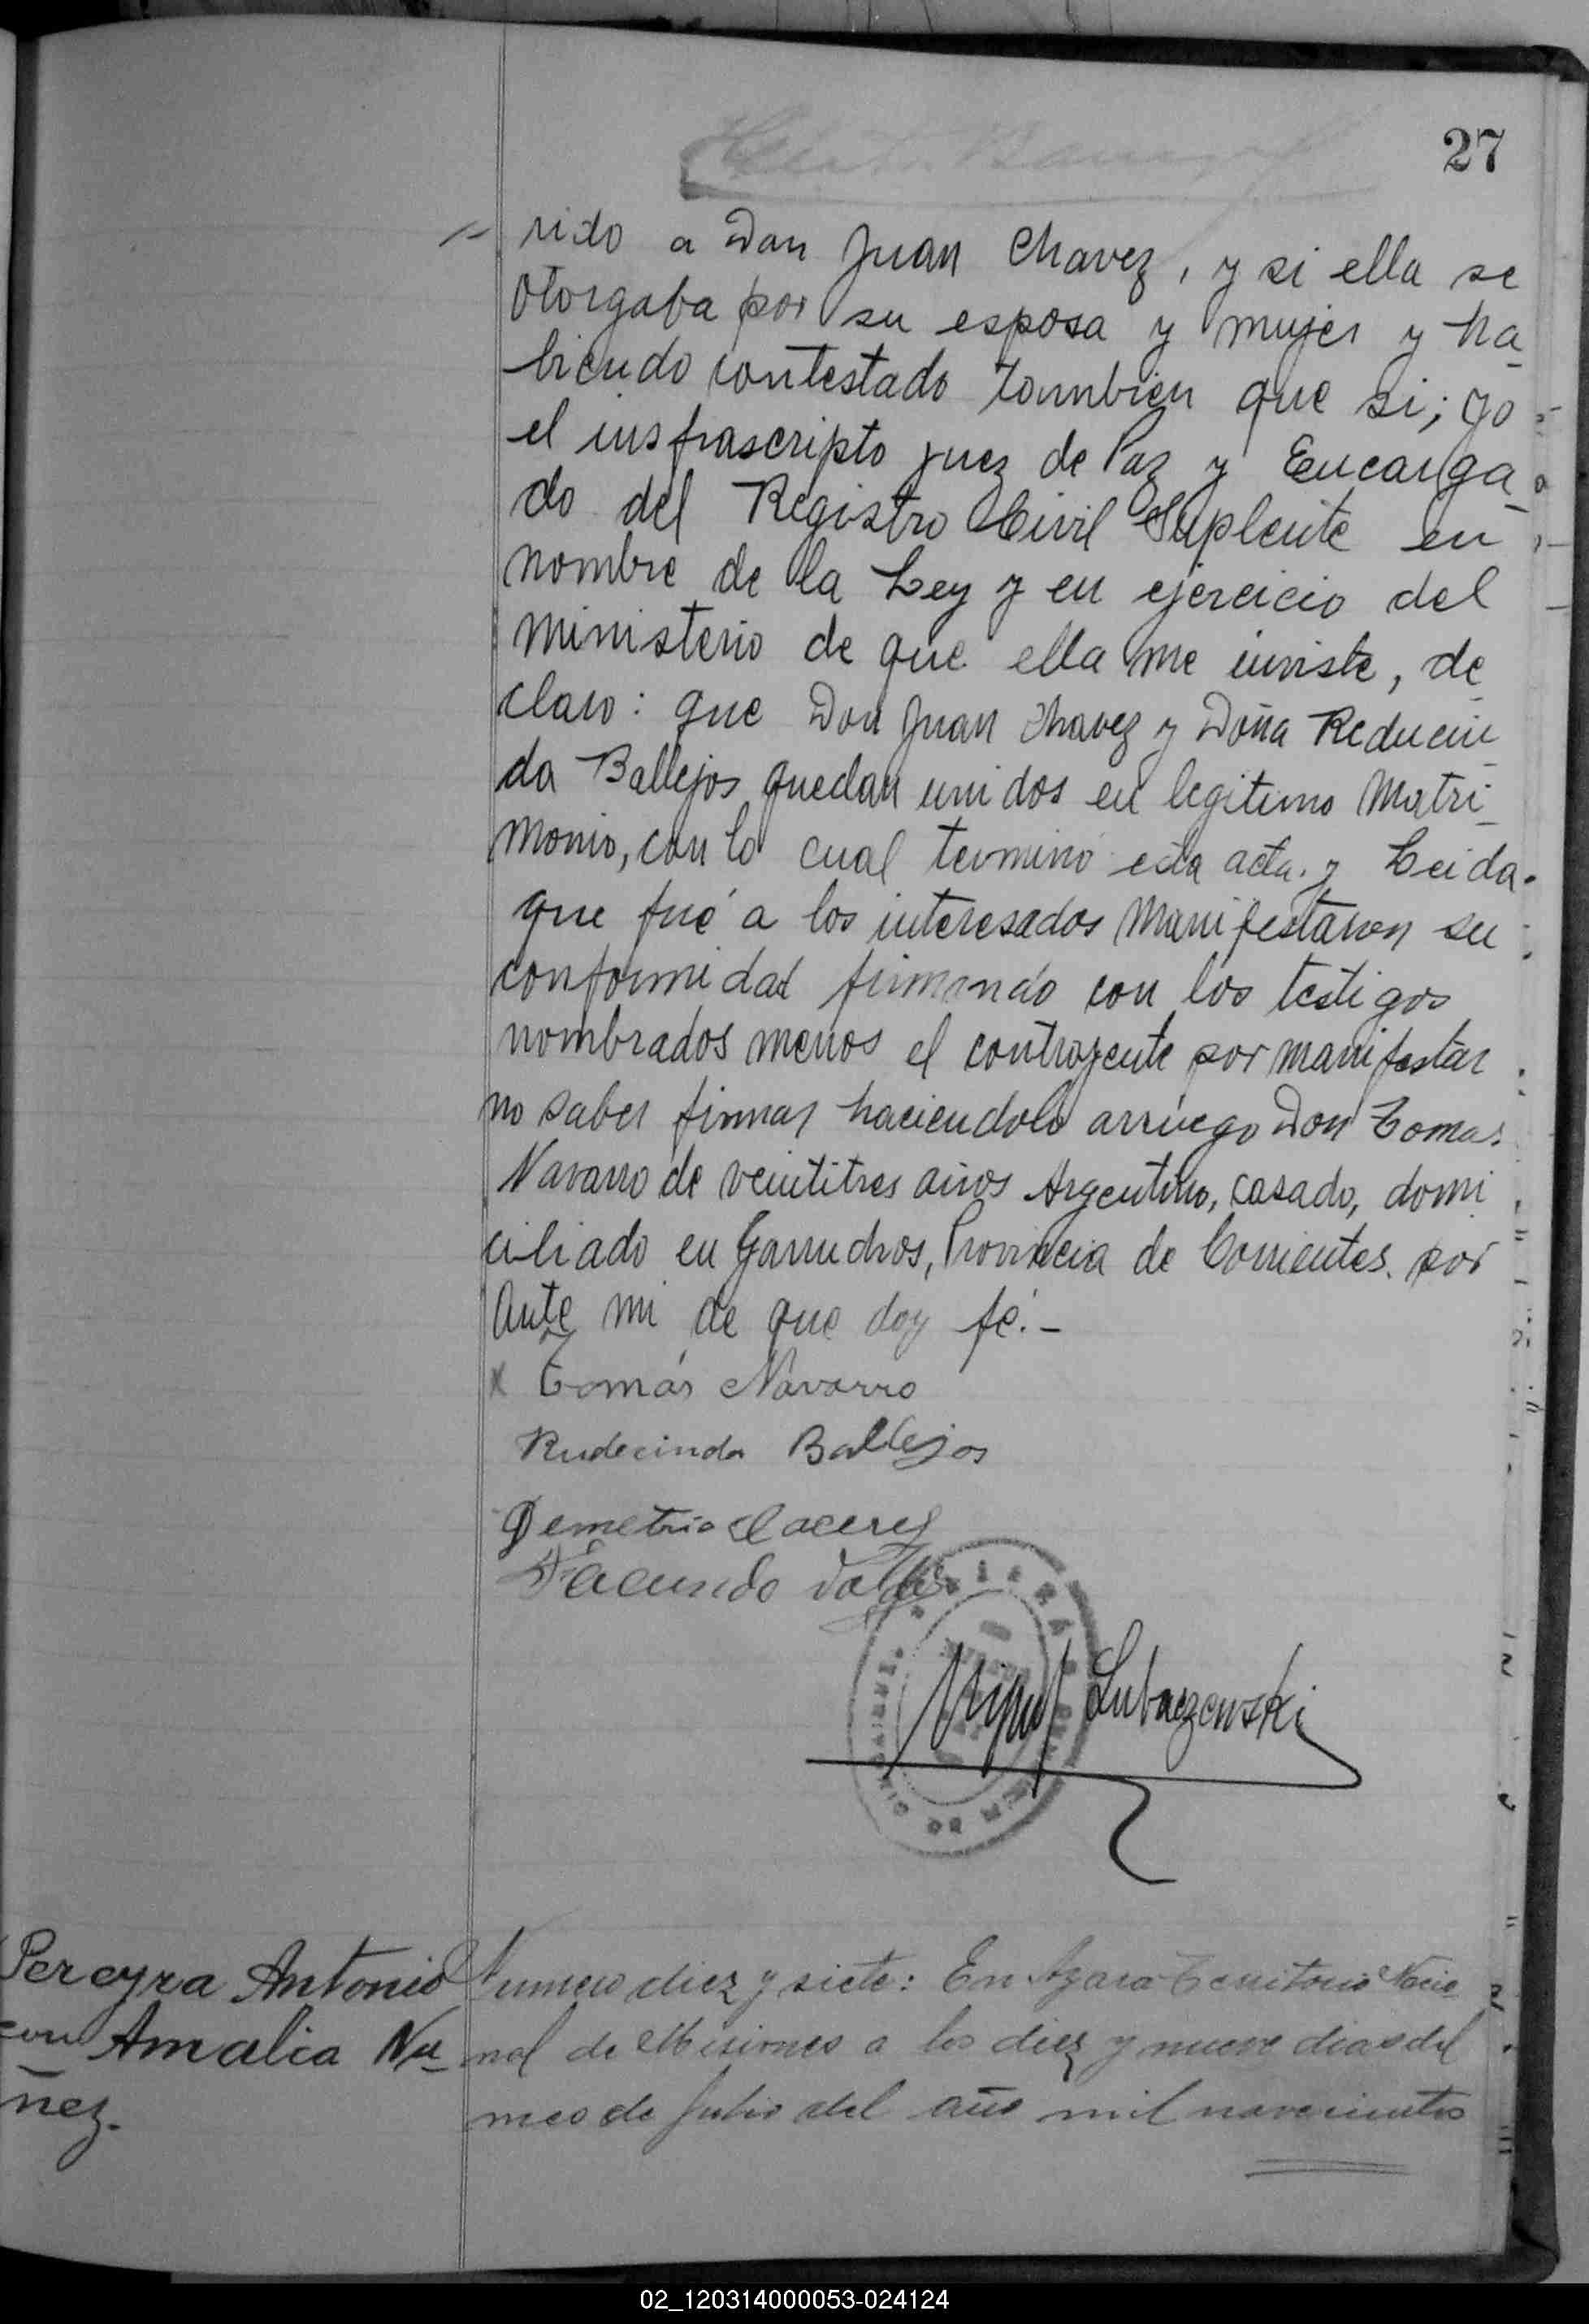 27
rido a Don Juan Chavez, y si ella se
otorgaba por su esposa y mujer y ha_
biendo contestado tambien que si; yo
el insfrascripto juez de Paz y Encarga_
do del Registro Civil Suplente en
nombre de la Ley y en ejercicio del
ministerio de que ella me inviste, de_
claro: que Don Juan Chavez y Doña Reducin_
da Ballejos quedan unidos en legitimo Matri_
monio, con lo cual terminó esta acta. y Leida.
que fué a los interesados manifestaron su
conformidad firmando con los testigos
nombrados menos el contrayente por manifestar
no saber firmar haciendolo arruego Don Tomas
Navarro de veintitres años Argentino, casado, domi
ciliado en Garruchos, Provincia de Corrientes. por
Ante mi de que doy fé.-
x Tomás Navarro
Rudecinda Ballejos
Demetrio Caceres
Facundo
Miguel Lubaczewski
Pereyra Antonio
con Amalia Nu_
ñez.
Numero diez y siete: En Azara Territorio Nacio_
nal de Misiones a los diez y nueve dias del
mes de Julio del año mil novecientos
02_120314000053-024124